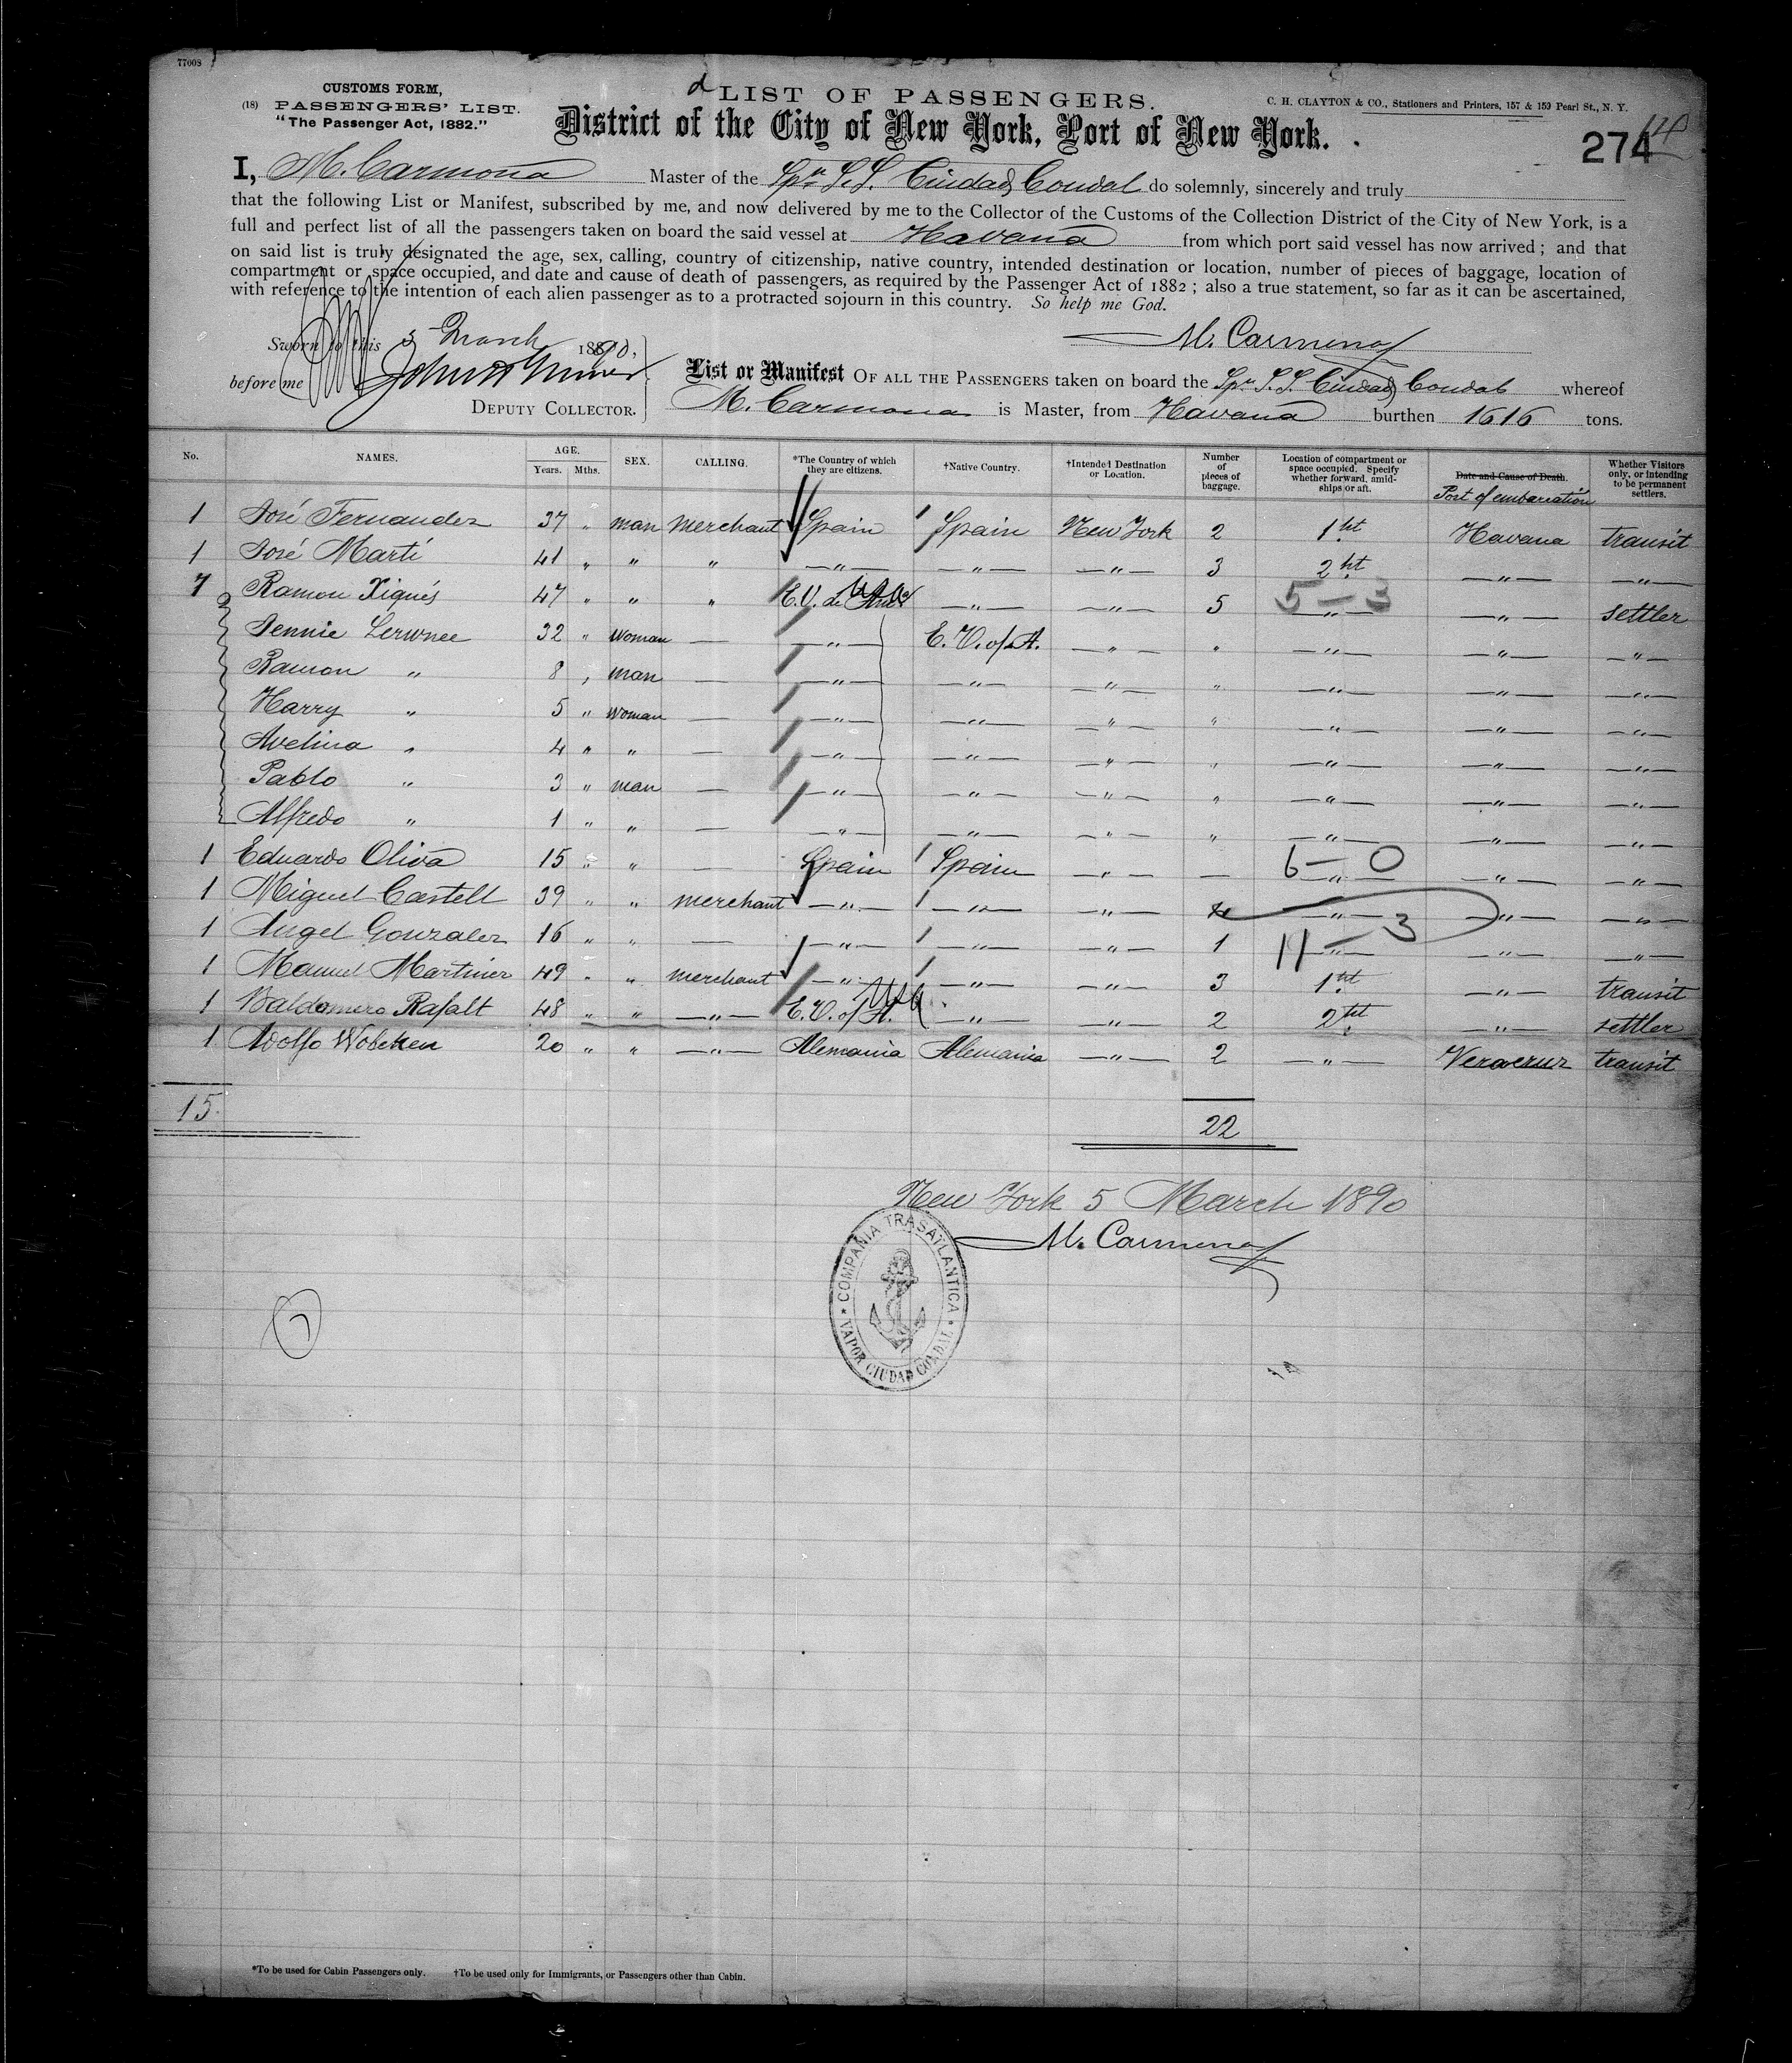 77008
CUSTOMS FORM,
(18) PASSENGERS' LIST.
"The Passenger Act, 1882."
LIST OF PASSENGERS.
C. H. CLAYTON & CO., Stationers and Printers, 157 & 159 Pearl St., N. Y.
District of the City of New York, Port of New York.
274
I, M. Carmona Master of the Spr S.S. Ciudad Condal do solemnly, sincerely and truly
that the following List or Manifest, subscribed by me, and now delivered by me to the Collector of the Customs of the Collection District of the City of New York, is a
full and perfect list of all the passengers taken on board the said vessel at Havana from which port said vessel has now arrived; and that
on said list is truly designated the age, sex, calling, country of citizenship, native country, intended destination or location, number of pieces of baggage, location of
compartment or space occupied, and date and cause of death of passengers, as required by the Passenger Act of 1882; also a true statement, so far as it can be ascertained,
with reference to the intention of each alien passenger as to a protracted sojourn in this country. So help me God.
Sworn to this 5 March 1890,
M. Carmona
before me
DEPUTY COLLECTOR.
List or Manifest OF ALL THE PASSENGERS taken on board the Spr S.S. Ciudad Condal whereof
M. Carmona is Master, from Havana burthen 1616 tons.
No. NAMES. AGE. Years. Mths. SEX. CALLING. *The Country of which they are citizens. †Native Country. †Intended Destination or Location. Number of pieces of baggage. Location of compartment or space occupied. Specify whether forward, amidships or aft. Date and Cause of Death. Port of embarcation Whether Visitors only, or intending to be permanent settlers.
1 José Fernandez 37 " man merchant Spain Spain New York 2 1ht Havana transit
1 José Martí 41 " " " " " " 3 2ht " "
7 Ramon Xiqués 47 " " " E.U. de Ame USA " " 5 5-3 " " settler
Jennie Lerwnee 32 " woman — " E.U. of A. " " " " "
Ramon " 8 , man — " " " " " " "
Harry " 5 " woman — " " " " " " "
Avelina " 4 " " — " " " " " " "
Pablo " 3 " man — " " " " " " "
Alfredo " 1 " " — " " " " " " "
1 Eduardo Oliva 15 " " — Spain Spain " — 6-0 " " "
1 Miguel Castell 39 " " merchant " " " 4 " " "
1 Angel Gonzalez 16 " " — " " " 1 11-3 " " "
1 Manuel Martinez 49 " " merchant " " " 3 1ht " transit
1 Baldomero Rafalt 48 " " " E.U. of A. USA " " 2 2ht " settler
1 Adolfo Wobeken 20 " " " Alemania Alemania " 2 " Veracruz transit
15.
22
New York 5 March 1890
M. Carmona
COMPAÑIA TRASATLANTICA
VAPOR CIUDAD CONDAL
*To be used for Cabin Passengers only. †To be used only for Immigrants, or Passengers other than Cabin.